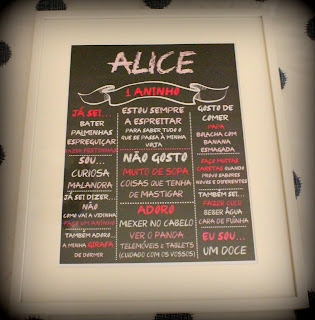 ALICE
1 ANINHO
JÁ SEI...
BATER
PALMINHAS
ESPREGUIÇAR
FAZER FESTINHAS
SOU...
CURIOSA
MALANDRA
JÁ SEI DIZER...
NÃO
COMO VAI A VIDINHA
FAÇO UM ANINHO
TAMBÉM ADORO...
A MINHA GIRAFA
DE DORMIR
ESTOU SEMPRE
A ESPREITAR
PARA SABER TUDO O
QUE SE PASSA À MINHA
VOLTA
NÃO GOSTO
MUITO DE SOPA
COISAS QUE TENHA
DE MASTIGAR
ADORO
MEXER NO CABELO
VER O PANDA
TELEMÓVEIS E TABLETS
(CUIDADO COM OS VOSSOS)
GOSTO DE
COMER
PAPA
BOLACHA COM
BANANA
ESMAGADA
FAÇO MUITAS
CARETAS QUANDO
PROVO SABORES
NOVOS E DIFERENTES
TAMBÉM SEI...
FAZER CUCÚ
BEBER ÁGUA
CARA DE FUINHA
EU SOU...
UM DOCE